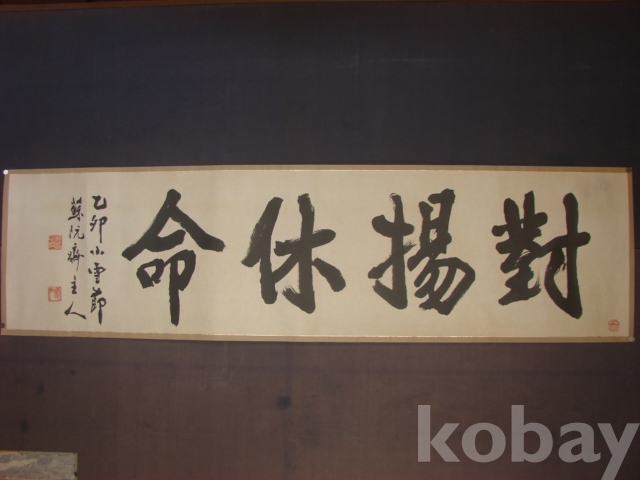 對揚休命
乙卯小雪節
蘇阮齋主人
kobay